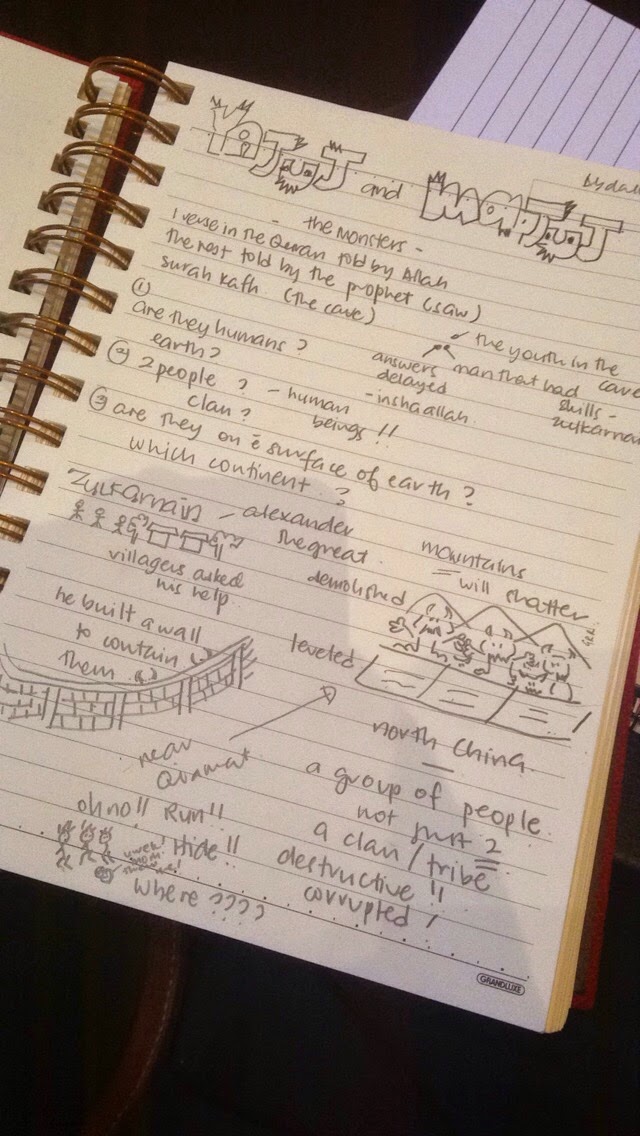 YaJuJ and maJuJ
- the monsters -
1 verse in the Quran told by Allah
the rest told by the prophet (saw)
surah kafh (the cave)
① are they humans?
earth?
② 2 people? - human beings!!
clan?
answers delayed
- inshaallah
the youth in the cave
man that had skills -
zulkarna
③ are they on ē surface of earth?
which continent?
Zulkarnain - alexander the great.
villagers asked his help
he built a wall
to contain
them
mountains
will shatter
demolished
leveled
north China
near Qiamat
oh no!! Run!!
Hide!!
where ????
a group of people
not just 2
a clan / tribe
destructive!!
corrupted!
GRANDLUXE